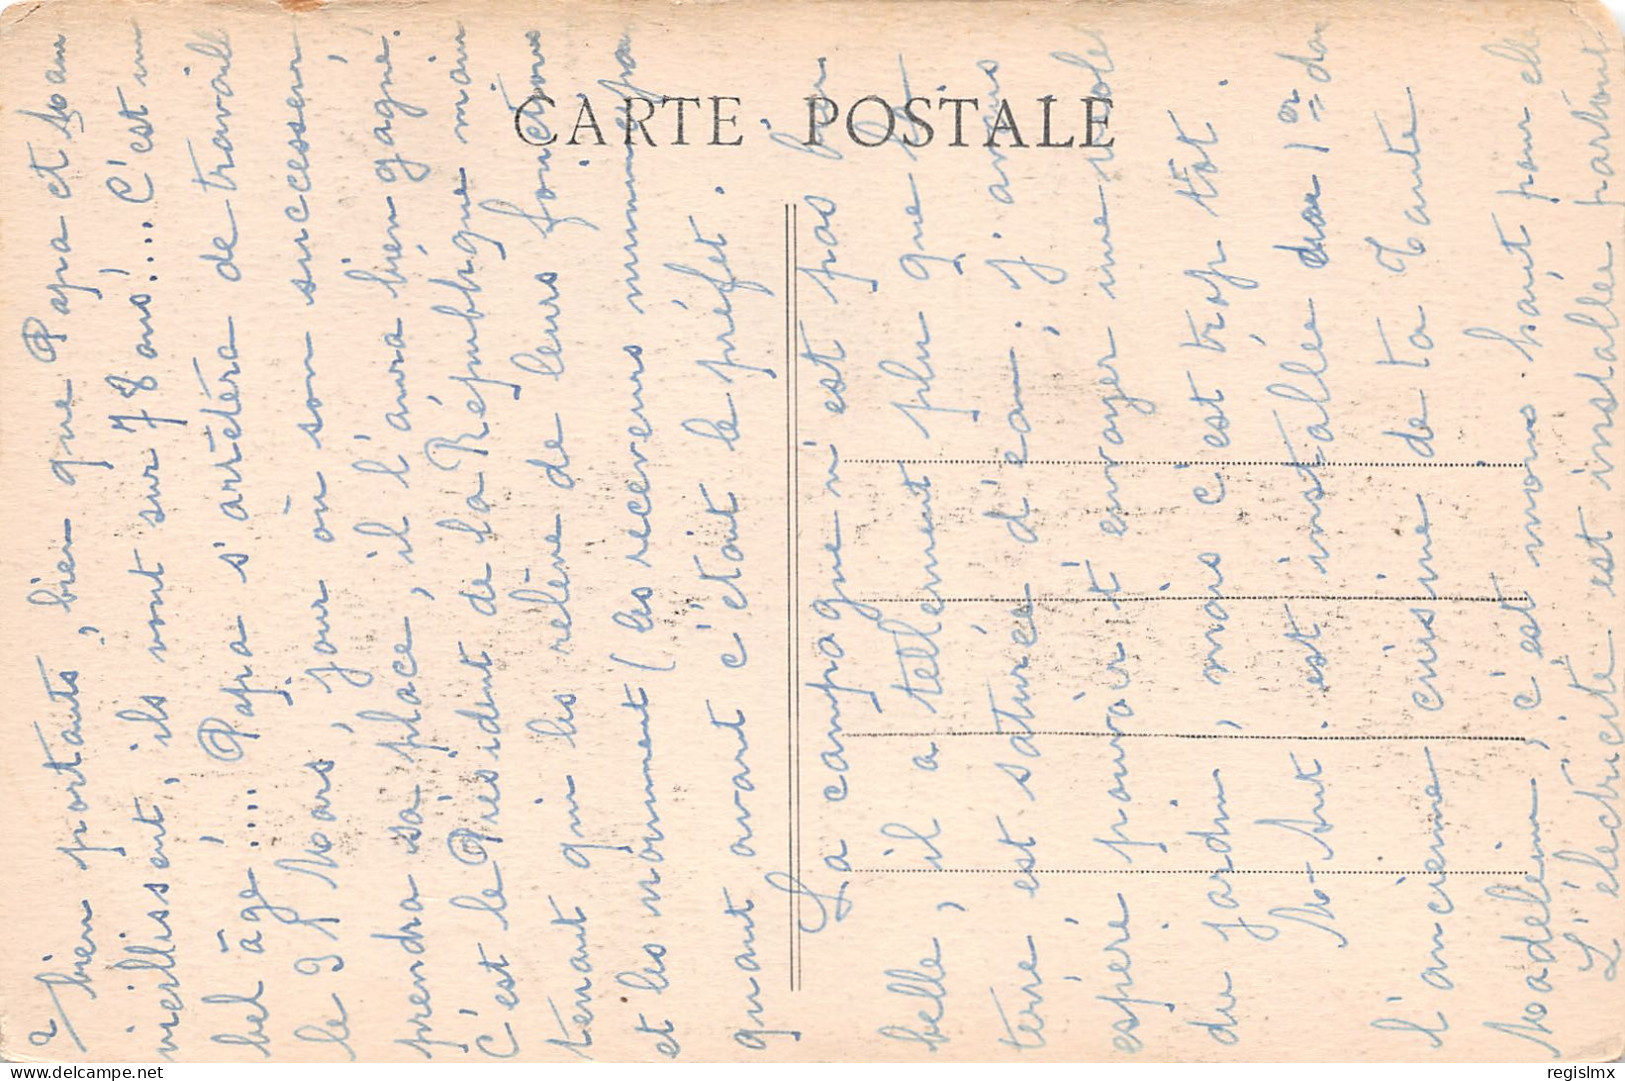 CARTE POSTALE
2/ bien portants, bien que Papa et Mam
vieillissent, ils vont sur 78 ans!... C'est un
bel âge!... Papa s'arrêtera de travaill
le 31 Mars, jour où son successeur
prendra sa place, il l'aura bien gagné.
C'est le Président de la République main
tenant qui les relève de leurs fonctions
et les nomment (les receveurs municipa
quant avant c'était le préfet.
La campagne n'est pas bin
belle, il a tellement plu que la
terre est saturée d'eau; j'avais
espéré pouvoir t'envoyer une viole
du jardin, mais c'est trop tôt.
est installée dans
l'ancienne cuisine de ta Tante
Madelein, c'est moins haut pour elle
L'électricité est installée partout
www.delcampe.net
regislmx